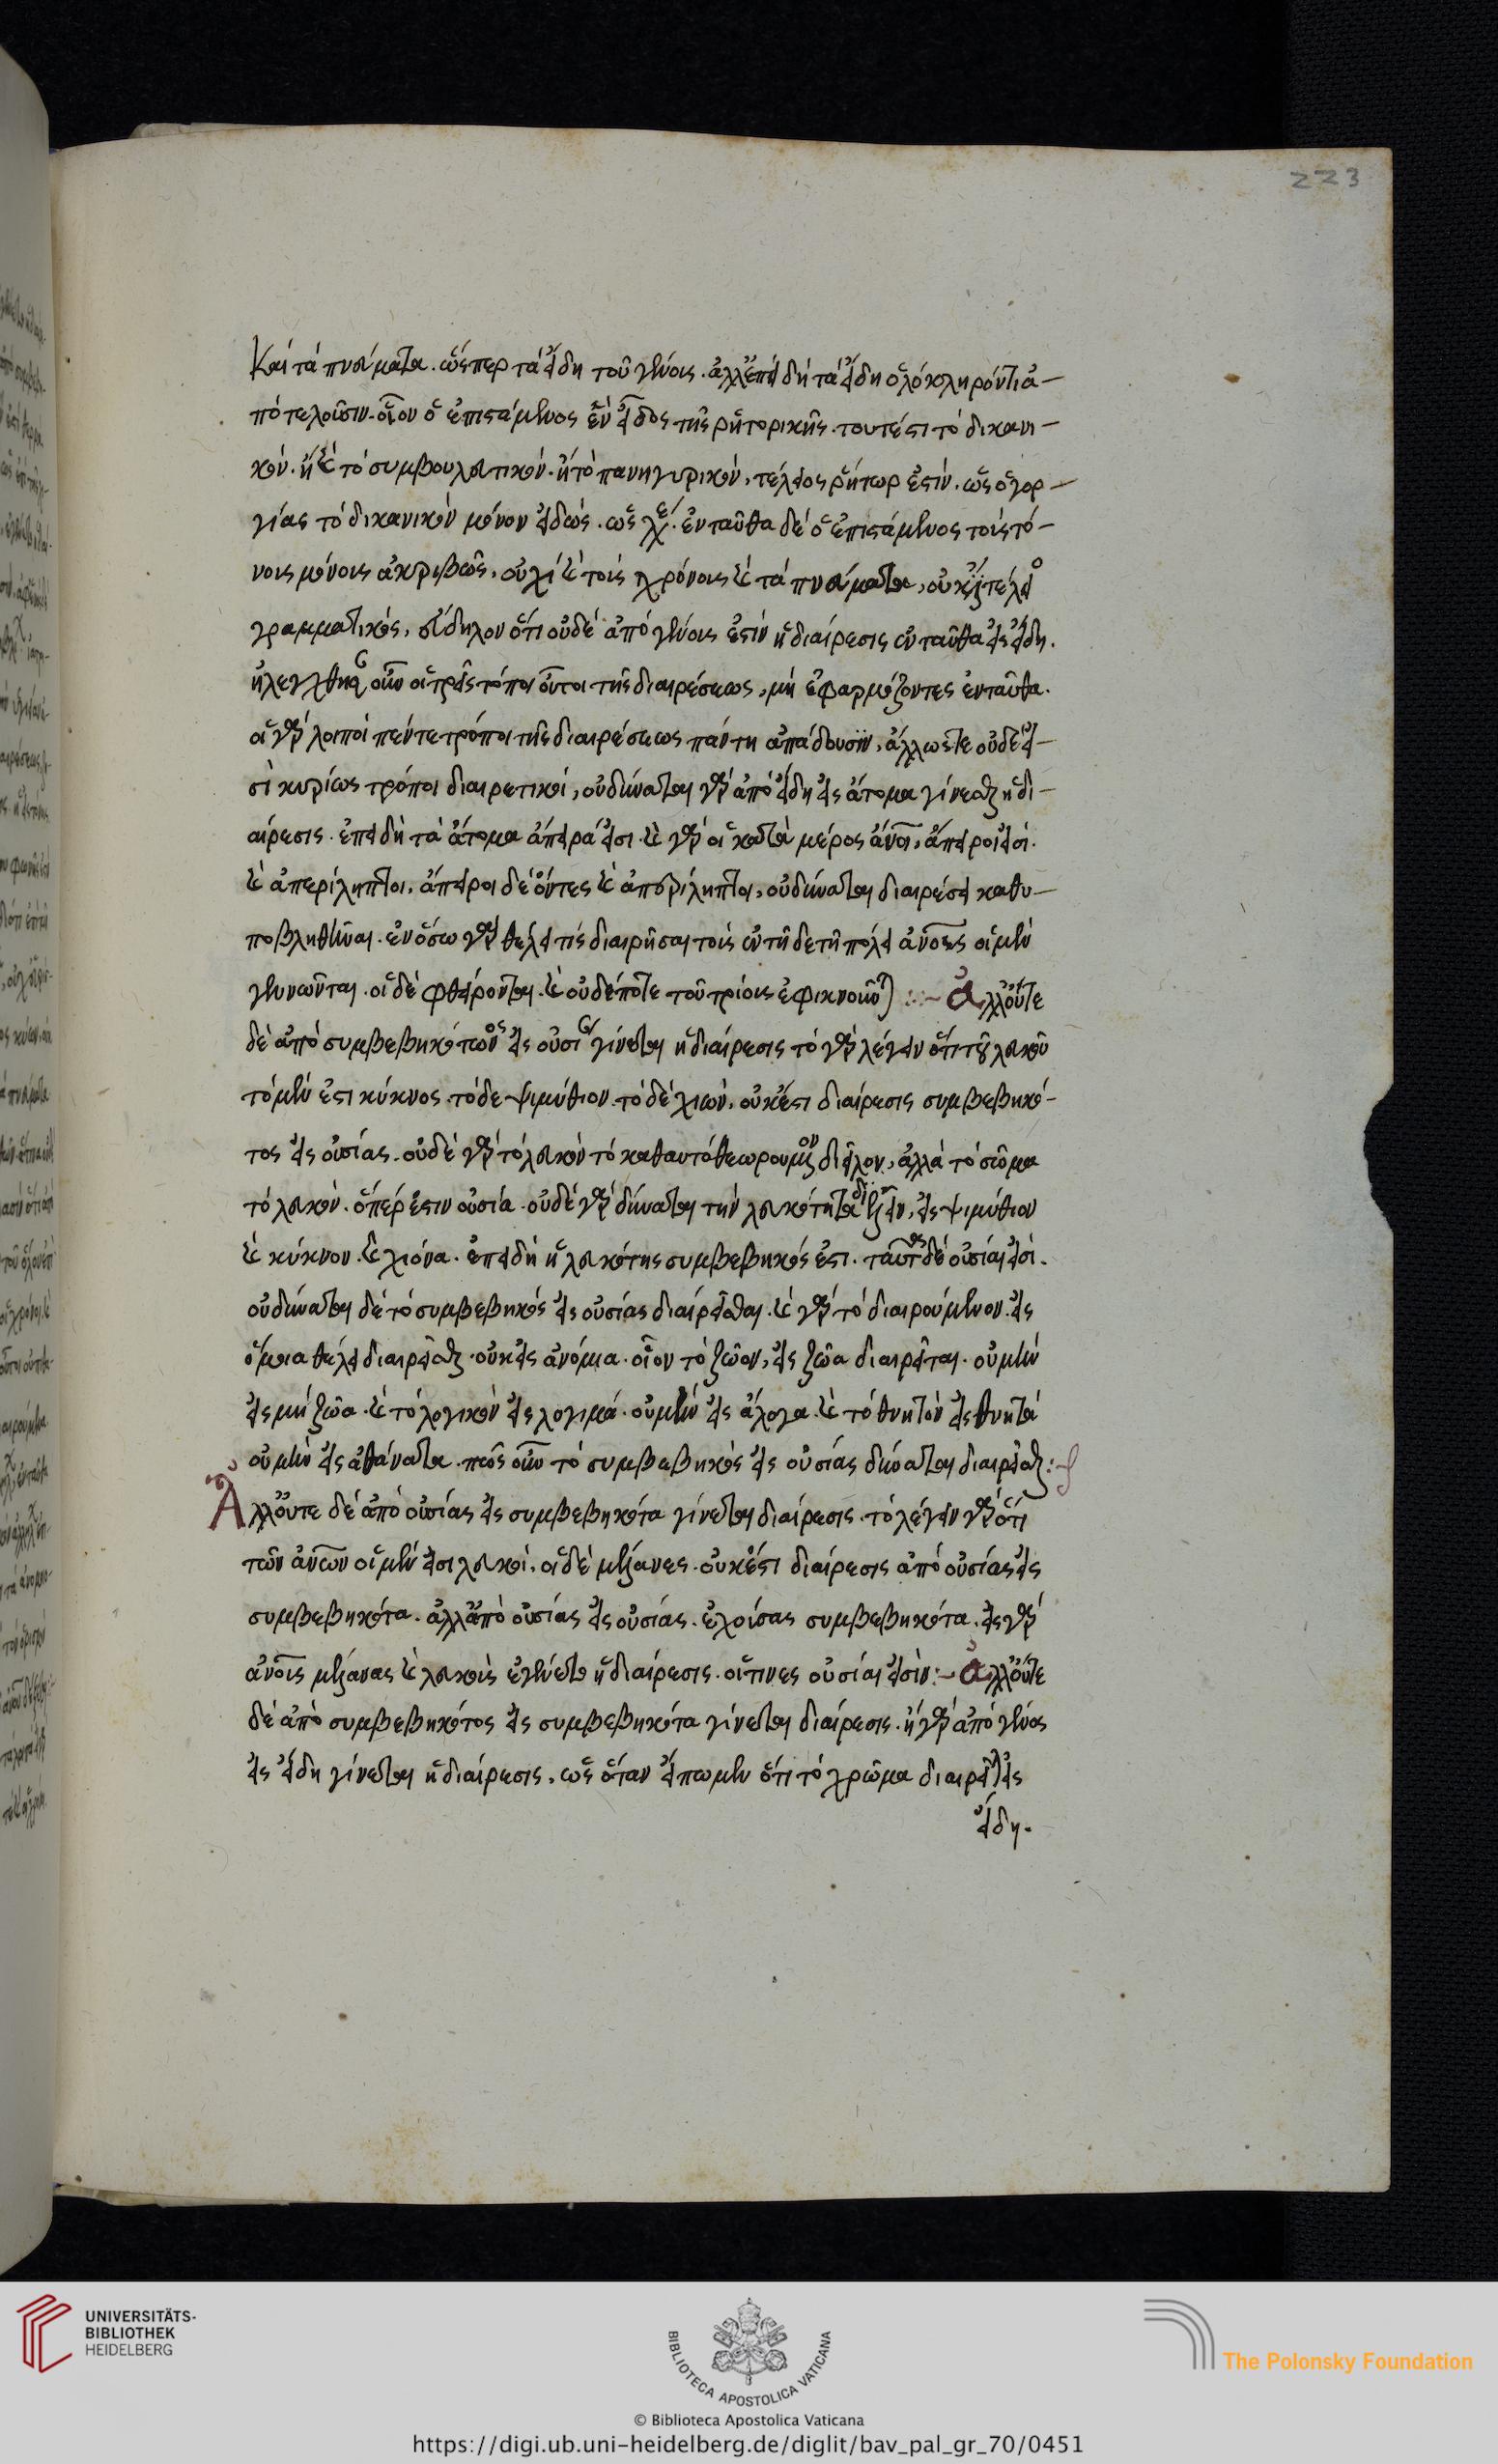 223
Καὶ τὰ πνεύματα. ὥσπερ τὰ εἴδη τοῦ γένους. ἀλλ' ἐπειδὴ τὰ εἴδη ὁλόκληρόν τι ἀ-
ποτελοῦσιν. οἷον ὁ ἐπιστάμενος ἓν εἶδος τῆς ῥητορικῆς. τουτέστι τὸ δικανι-
κόν. ἢ καὶ τὸ συμβουλευτικόν. ἢ τὸ πανηγυρικόν, τέλειος ῥήτωρ ἐστίν. ὡς ὁ γορ-
γίας τὸ δικανικὸν μόνον εἰδώς. ὡς. ἐνταῦθα δὲ ὁ ἐπιστάμενος τοὺς τό-
νους μόνους ἀκριβῶς, οὐχὶ καὶ τοὺς χρόνους καὶ τὰ πνεύματα, οὐκ ἔστι τέλειος
γραμματικός, εὔδηλον ὅτι οὐδὲ ἀπὸ γένους ἐστὶν ἡ διαίρεσις ἐνταῦθα εἰς εἴδη.
ἠλέγχθησαν οὖν οἱ τρεῖς τόποι οὗτοι τῆς διαιρέσεως, μὴ ἐφαρμόζοντες ἐνταῦθα.
οἱ γὰρ λοιποὶ πέντε τρόποι τῆς διαιρέσεως πάντη ἀπάδουσιν, ἄλλως τε οὐδὲ εἰ-
σὶ κυρίως τρόποι διαιρετικοί, οὐ δύναται γὰρ ἀπὸ εἴδη εἰς ἄτομα γίνεσθαι ἡ δι-
αίρεσις. ἐπειδὴ τὰ ἄτομα ἄπειρά εἰσι. καὶ γὰρ οἱ κατὰ μέρος ἄνοι, ἄπειροί εἰσί.
καὶ ἀπερίληπτοι. ἄπειροι δὲ ὄντες καὶ ἀπερίληπτοι, οὐ δύναται διαιρέσει καθυ-
ποβληθῆναι. ἐν ὅσω γὰρ θέλει τίς διαιρῆσαι τοὺς ἐν τῆδε τῆ πόλει ἀνους οἱ μὲν
γεννῶνται. οἱ δὲ φθείρονται. καὶ οὐδέποτε τοῦ τρίους ἐφικνοῦνται :~ ἀλλ' οὔτε
δὲ ἀπὸ συμβεβηκότος εἰς οὐσίαν γίνεται ἡ διαίρεσις τὸ γὰρ λέγειν ὅτι τοῦ λευκοῦ
τὸ μέν ἐστι κύκνος. τὸ δὲ ψιμύθιον. τὸ δὲ χιών, οὐκ ἔστι διαίρεσις συμβεβηκό-
τος εἰς οὐσίας. οὐδὲ γὰρ τὸ λευκὸν τὸ καθ αυτὸ θεωρούμενον διεῖλον, ἀλλὰ τὸ σῶμα
τὸ λευκόν. ὅπέρ ἐστιν οὐσία. οὐδὲ γὰρ δύναται τὴν λευκότητα διελεῖν, εἰς ψιμύθιον
καὶ κύκνον. καὶ χιόνα. ἐπειδὴ ἡ λευκότης συμβεβηκός ἐστι. ταῦτα δὲ οὐσίαι εἰσί.
οὐ δύναται δὲ τὸ συμβεβηκὸς εἰς οὐσίας διαιρεῖσθαι. καὶ γὰρ τὸ διαιρούμενον. εἰς
ὅμοια θέλει διαιρεῖσθαι. οὐκ εἰς ἀνόμοια. οἷον τὸ ζῶον, εἰς ζῶα διαιρεῖται. οὐ μὲν
εἰς μὴ ζῶα. καὶ τὸ λογικὸν εἰς λογικά. οὐ μὲν εἰς ἄλογα. καὶ τὸ θνητὸν εἰς θνητά
οὐ μὲν εἰς ἀθάνατα. πῶς οὖν τὸ συμβεβηκὸς εἰς οὐσίας δύναται διαιρεῖσθαι:~
Ἀλλ' οὔτε δὲ ἀπὸ οὐσίας εἰς συμβεβηκότα γίνεται διαίρεσις. τὸ λέγειν γὰρ ὅτι
τῶν ἀνων οἱ μέν εἰσι λευκοί. οἱ δὲ μέλανες. οὐκ ἔστι διαίρεσις ἀπὸ οὐσίας εἰς
συμβεβηκότα. ἀλλ' ἀπὸ οὐσίας εἰς οὐσίας. ἐχούσας συμβεβηκότα. εἰς γὰρ
ἀνους μέλανας καὶ λευκοὺς ἐγένετο ἡ διαίρεσις. οἵτινες οὐσίαι εἰσίν:~ ἀλλ' οὔτε
δὲ ἀπὸ συμβεβηκότος εἰς συμβεβηκότα γίνεται διαίρεσις. ἢ γὰρ ἀπὸ γένος
εἰς εἴδη γίνεται ἡ διαίρεσις, ὡς ὅταν εἴπωμεν ὅτι τὸ χρῶμα διαιρεῖται εἰς
εἴδη.
UNIVERSITÄTS-
BIBLIOTHEK
HEIDELBERG
BIBLIOTECA APOSTOLICA VATICANA
The Polonsky Foundation
© Biblioteca Apostolica Vaticana
https://digi.ub.uni-heidelberg.de/diglit/bav_pal_gr_70/0451